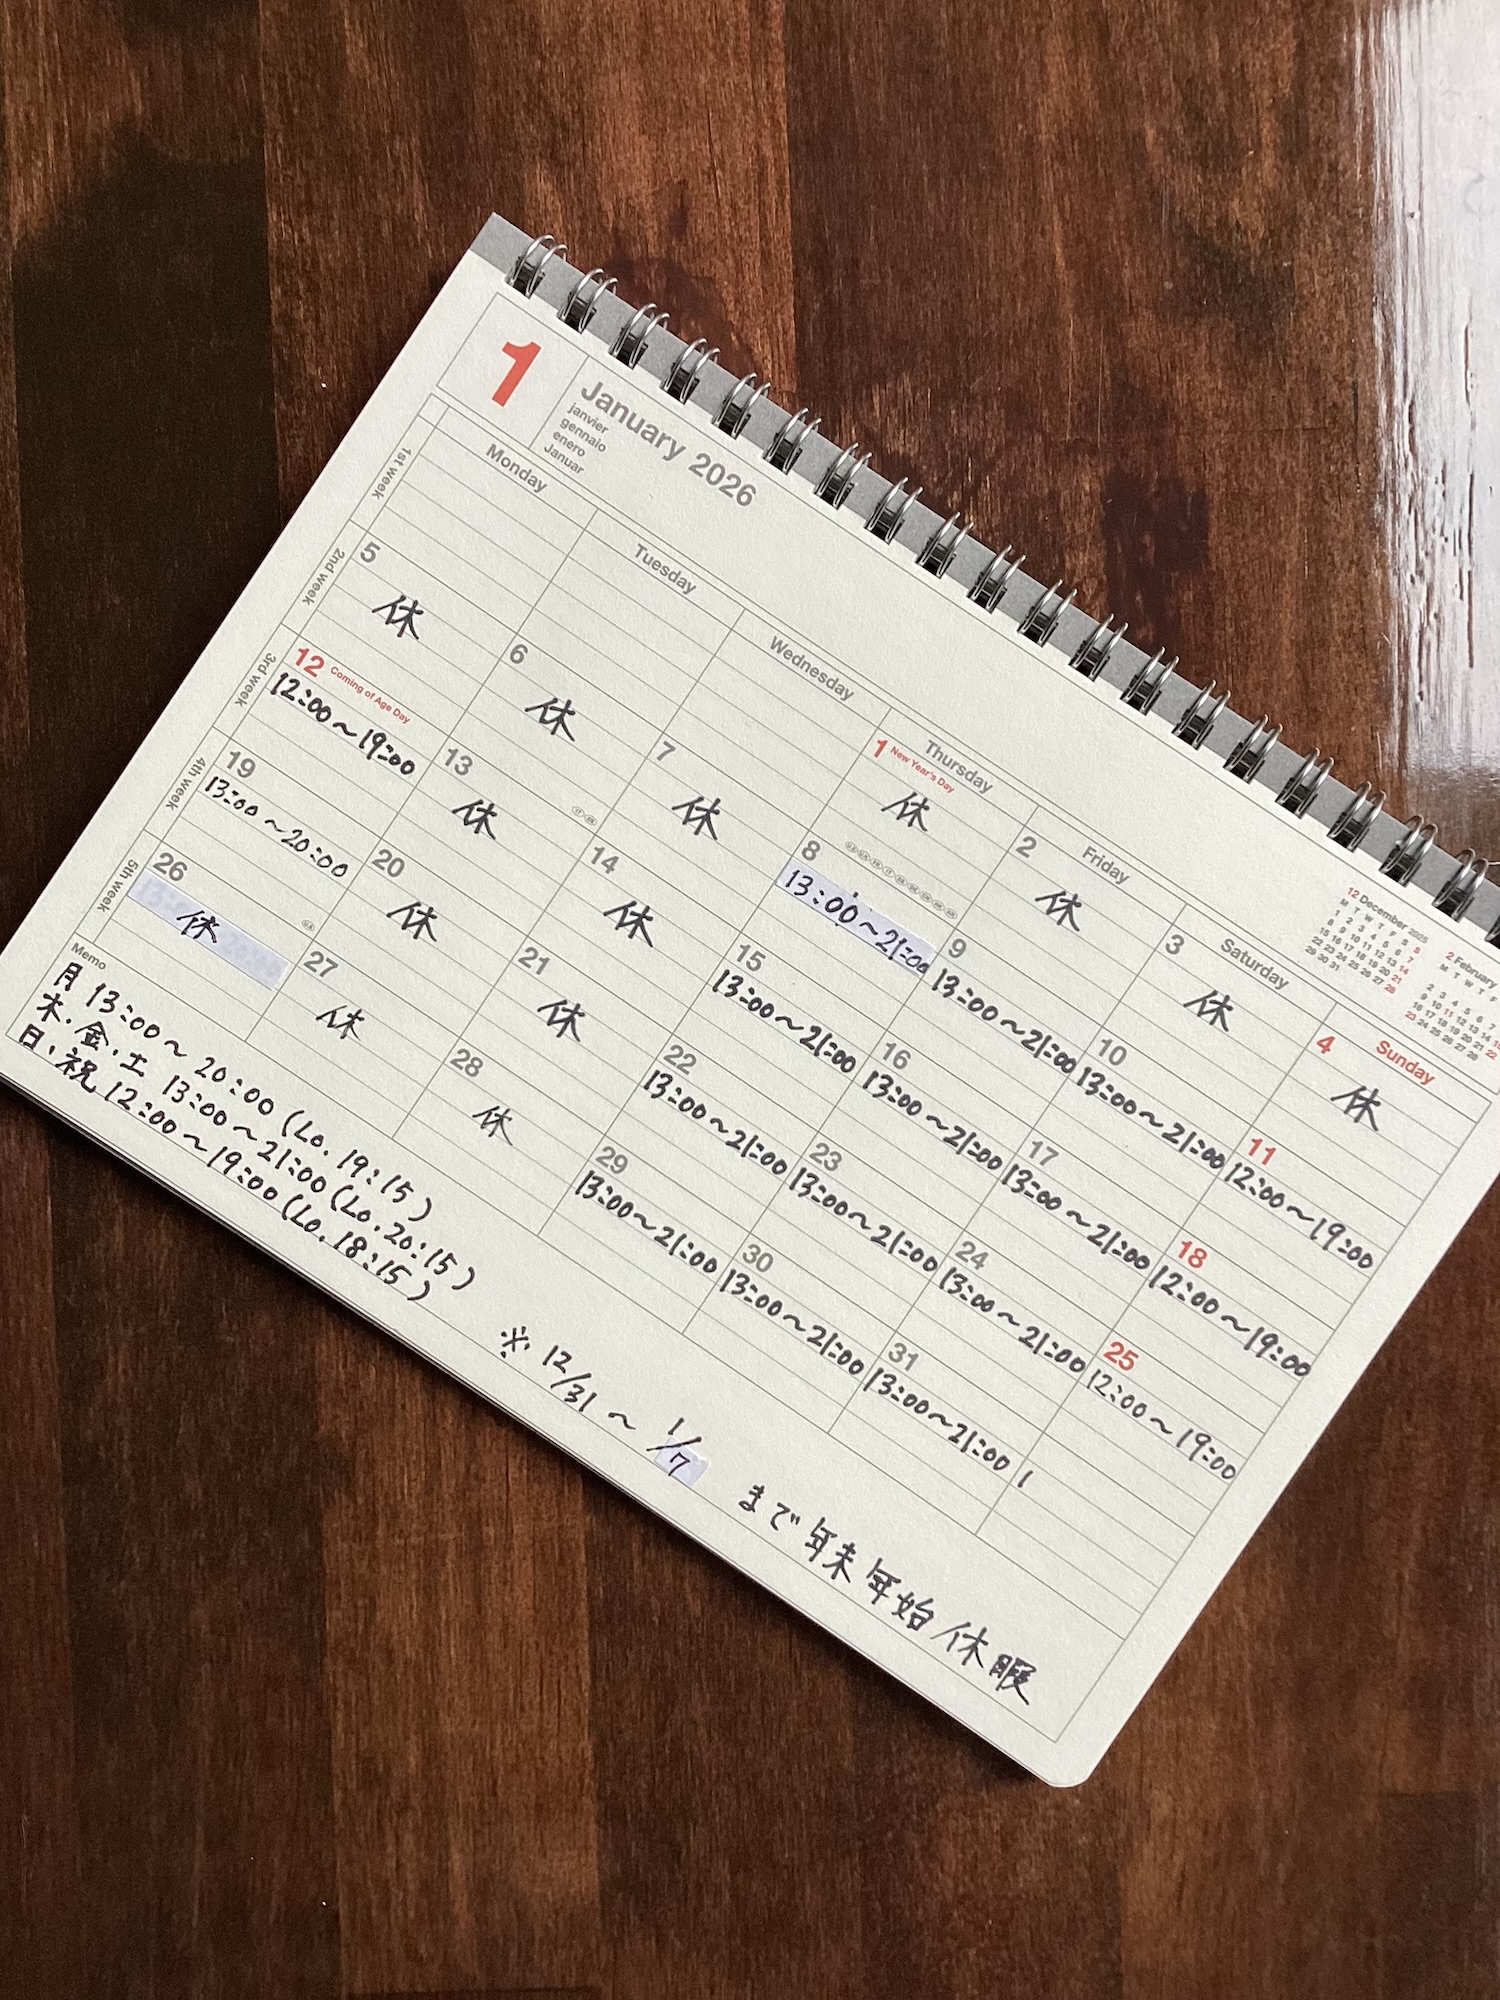 1
January 2026
janvier
gennaio
enero
Januar
12 December 2025
M T W T F S S
1 2 3 4 5 6 7
8 9 10 11 12 13 14
15 16 17 18 19 20 21
22 23 24 25 26 27 28
29 30 31
2 February
M T W T
2 3 4 5 6 7
Monday Tuesday Wednesday Thursday Friday Saturday Sunday
1st week
1 New Year's Day
休
2
休
3
休
4
休
2nd week
5
休
6
休
7
休
8
13:00〜21:00
9
13:00〜21:00
10
13:00〜21:00
11
12:00〜19:00
3rd week
12 Coming of Age Day
12:00〜19:00
13
休
14
休
15
13:00〜21:00
16
13:00〜21:00
17
13:00〜21:00
18
12:00〜19:00
4th week
19
13:00〜20:00
20
休
21
休
22
13:00〜21:00
23
13:00〜21:00
24
13:00〜21:00
25
12:00〜19:00
5th week
26
休
27
休
28
休
29
13:00〜21:00
30
13:00〜21:00
31
13:00〜21:00
1
Memo
月 13:00〜20:00 (Lo. 19:15)
木・金・土 13:00〜21:00 (Lo. 20:15)
日・祝 12:00〜19:00 (Lo. 18:15)
※ 12/31 〜 1/7 まで 年末年始休暇